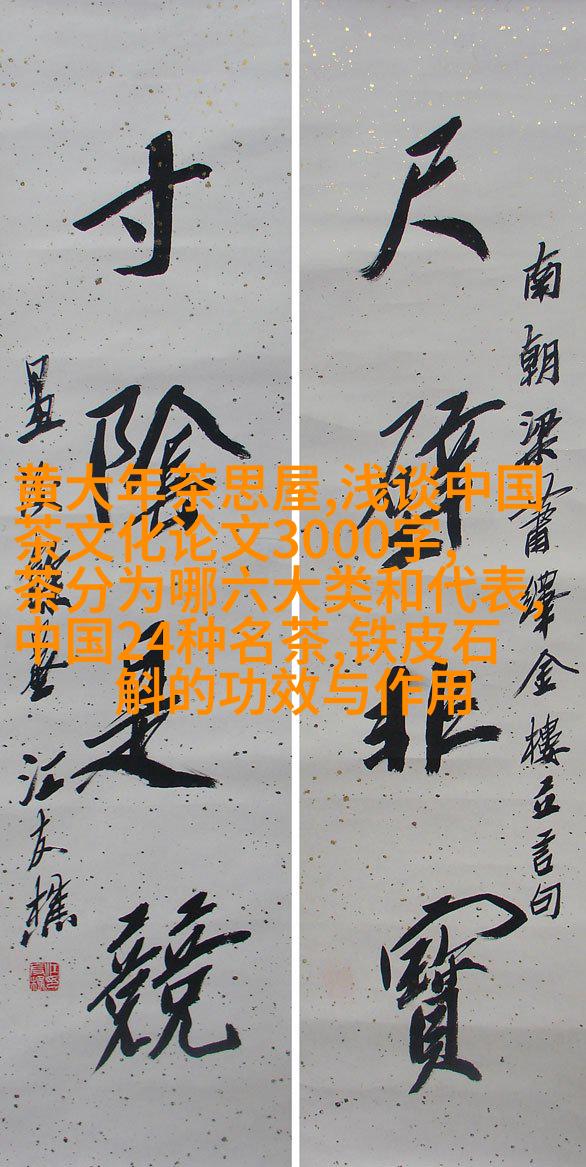 南朝梁蕭繹金樓立言句
尺璧非寶
寸陰是競
汪友樵
黄大年茶思屋,浅谈中国
茶文化论文3000字,
茶分为哪六大类和代表,
中国24种名茶,铁皮石
斛的功效与作用